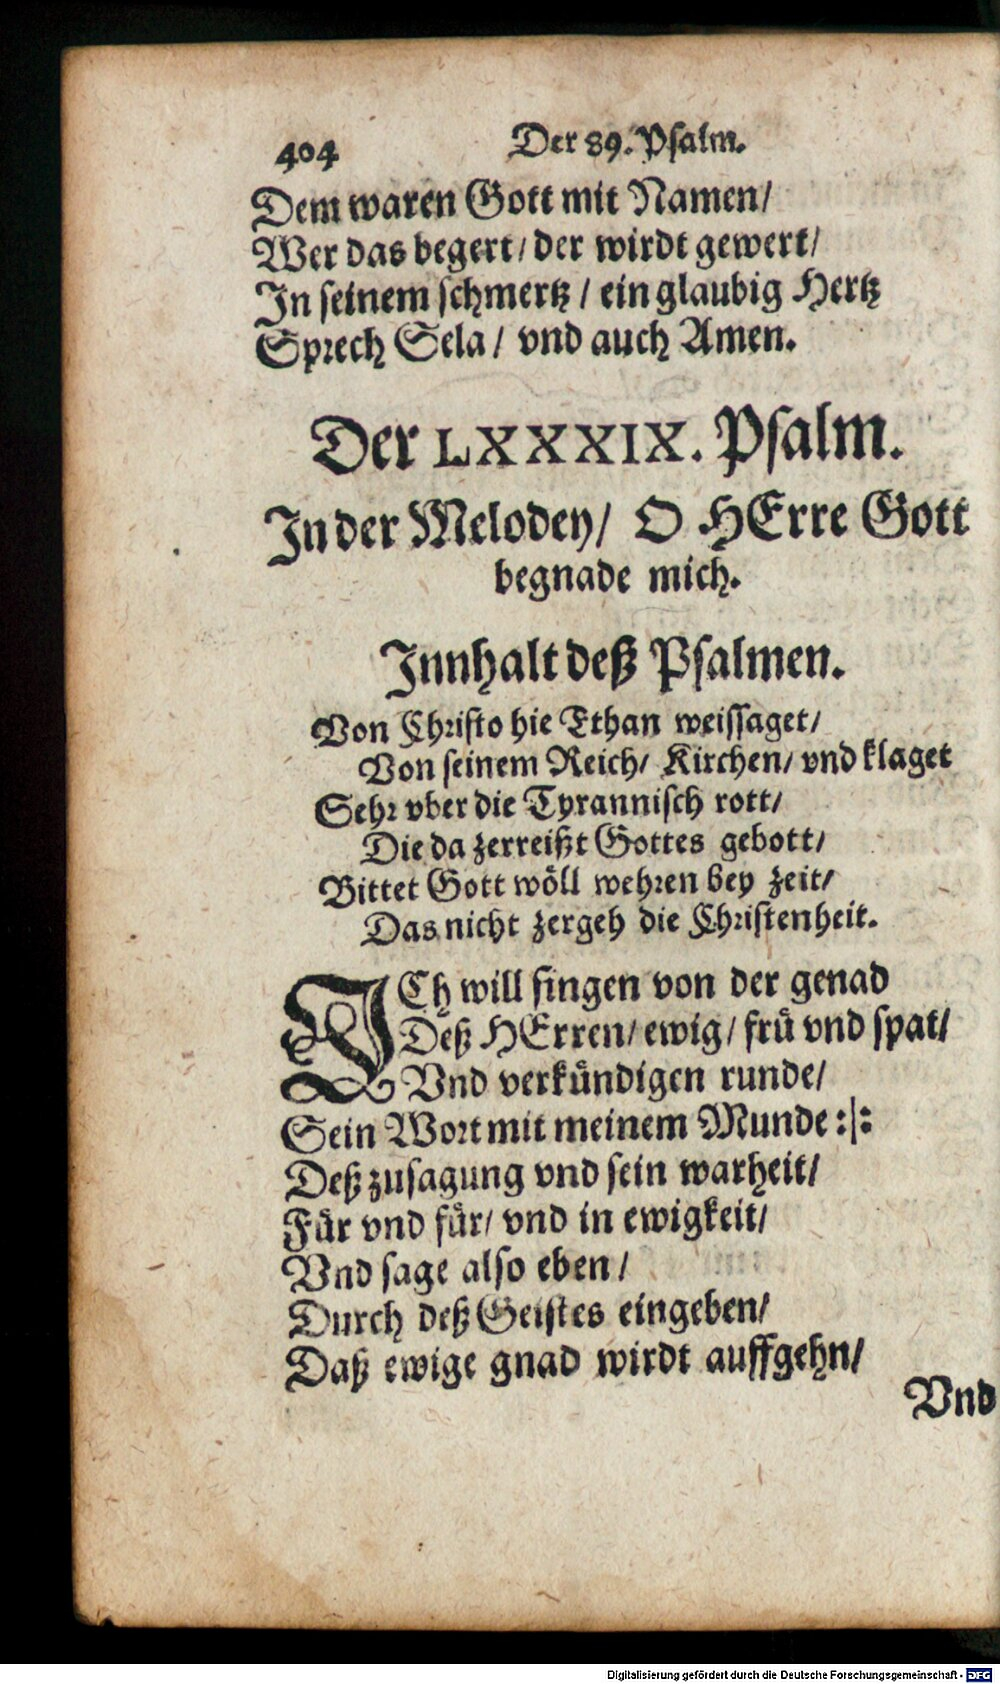 404 Der 89. Psalm.
Dem waren Gott mit Namen/
Wer das begert/ der wirdt gewert/
In seinem schmertz / ein glaubig Hertz
Sprech Sela/ vnd auch Amen.
Der LXXXIX. Psalm.
In der Melodey/ O HErre Gott
begnade mich.
Innhalt deß Psalmen.
Von Christo hie Ethan weissaget/
Von seinem Reich/ Kirchen/ vnd klaget
Sehr vber die Tyrannisch rott/
Die da zerreißt Gottes gebott/
Bittet Gott wöll wehren bey zeit/
Das nicht zergeh die Christenheit.
ICh will singen von der genad
Deß HErren/ ewig/ frü vnd spat/
Vnd verkündigen runde/
Sein Wort mit meinem Munde :|:
Deß zusagung vnd sein warheit/
Für vnd für/ vnd in ewigkeit/
Vnd sage also eben/
Durch deß Geistes eingeben/
Daß ewige gnad wirdt auffgehn/
Vnd
Digitalisierung gefördert durch die Deutsche Forschungsgemeinschaft - DFG